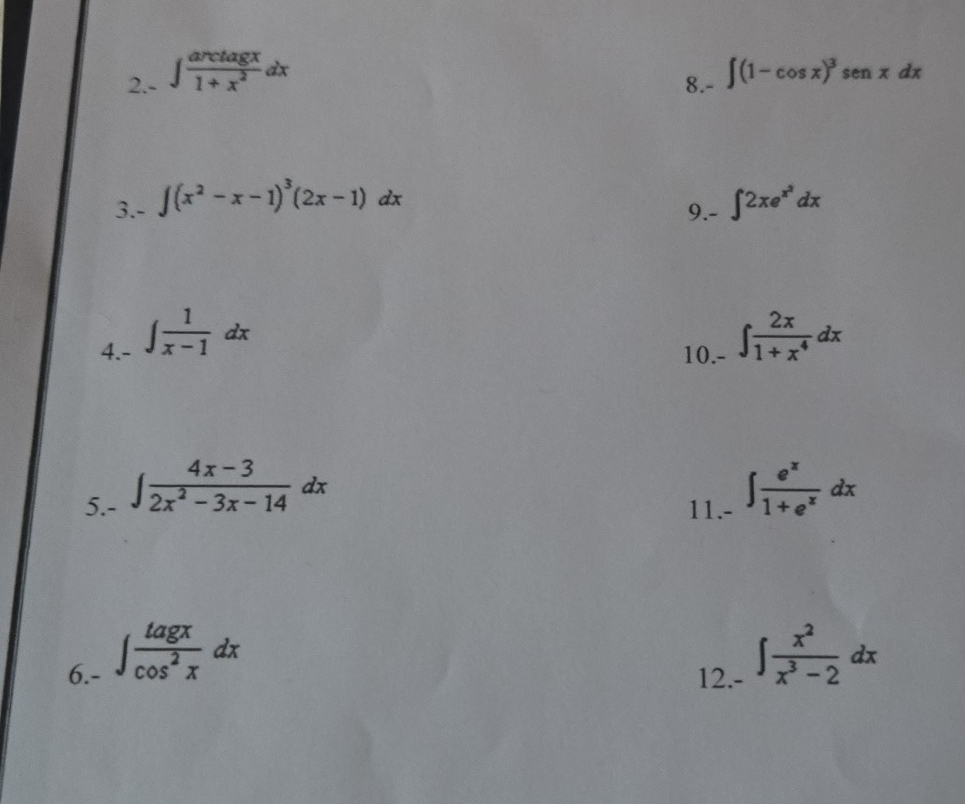 2.- ∫ arctagx / 1 + x² dx
3.- ∫(x² − x − 1)³(2x − 1) dx
4.- ∫ 1 / x − 1 dx
5.- ∫ 4x − 3 / 2x² − 3x − 14 dx
6.- ∫ tagx / cos² x dx
8.- ∫(1 − cos x)³ sen x dx
9.- ∫2xeˣ² dx
10.- ∫ 2x / 1 + x⁴ dx
11.- ∫ eˣ / 1 + eˣ dx
12.- ∫ x² / x³ − 2 dx